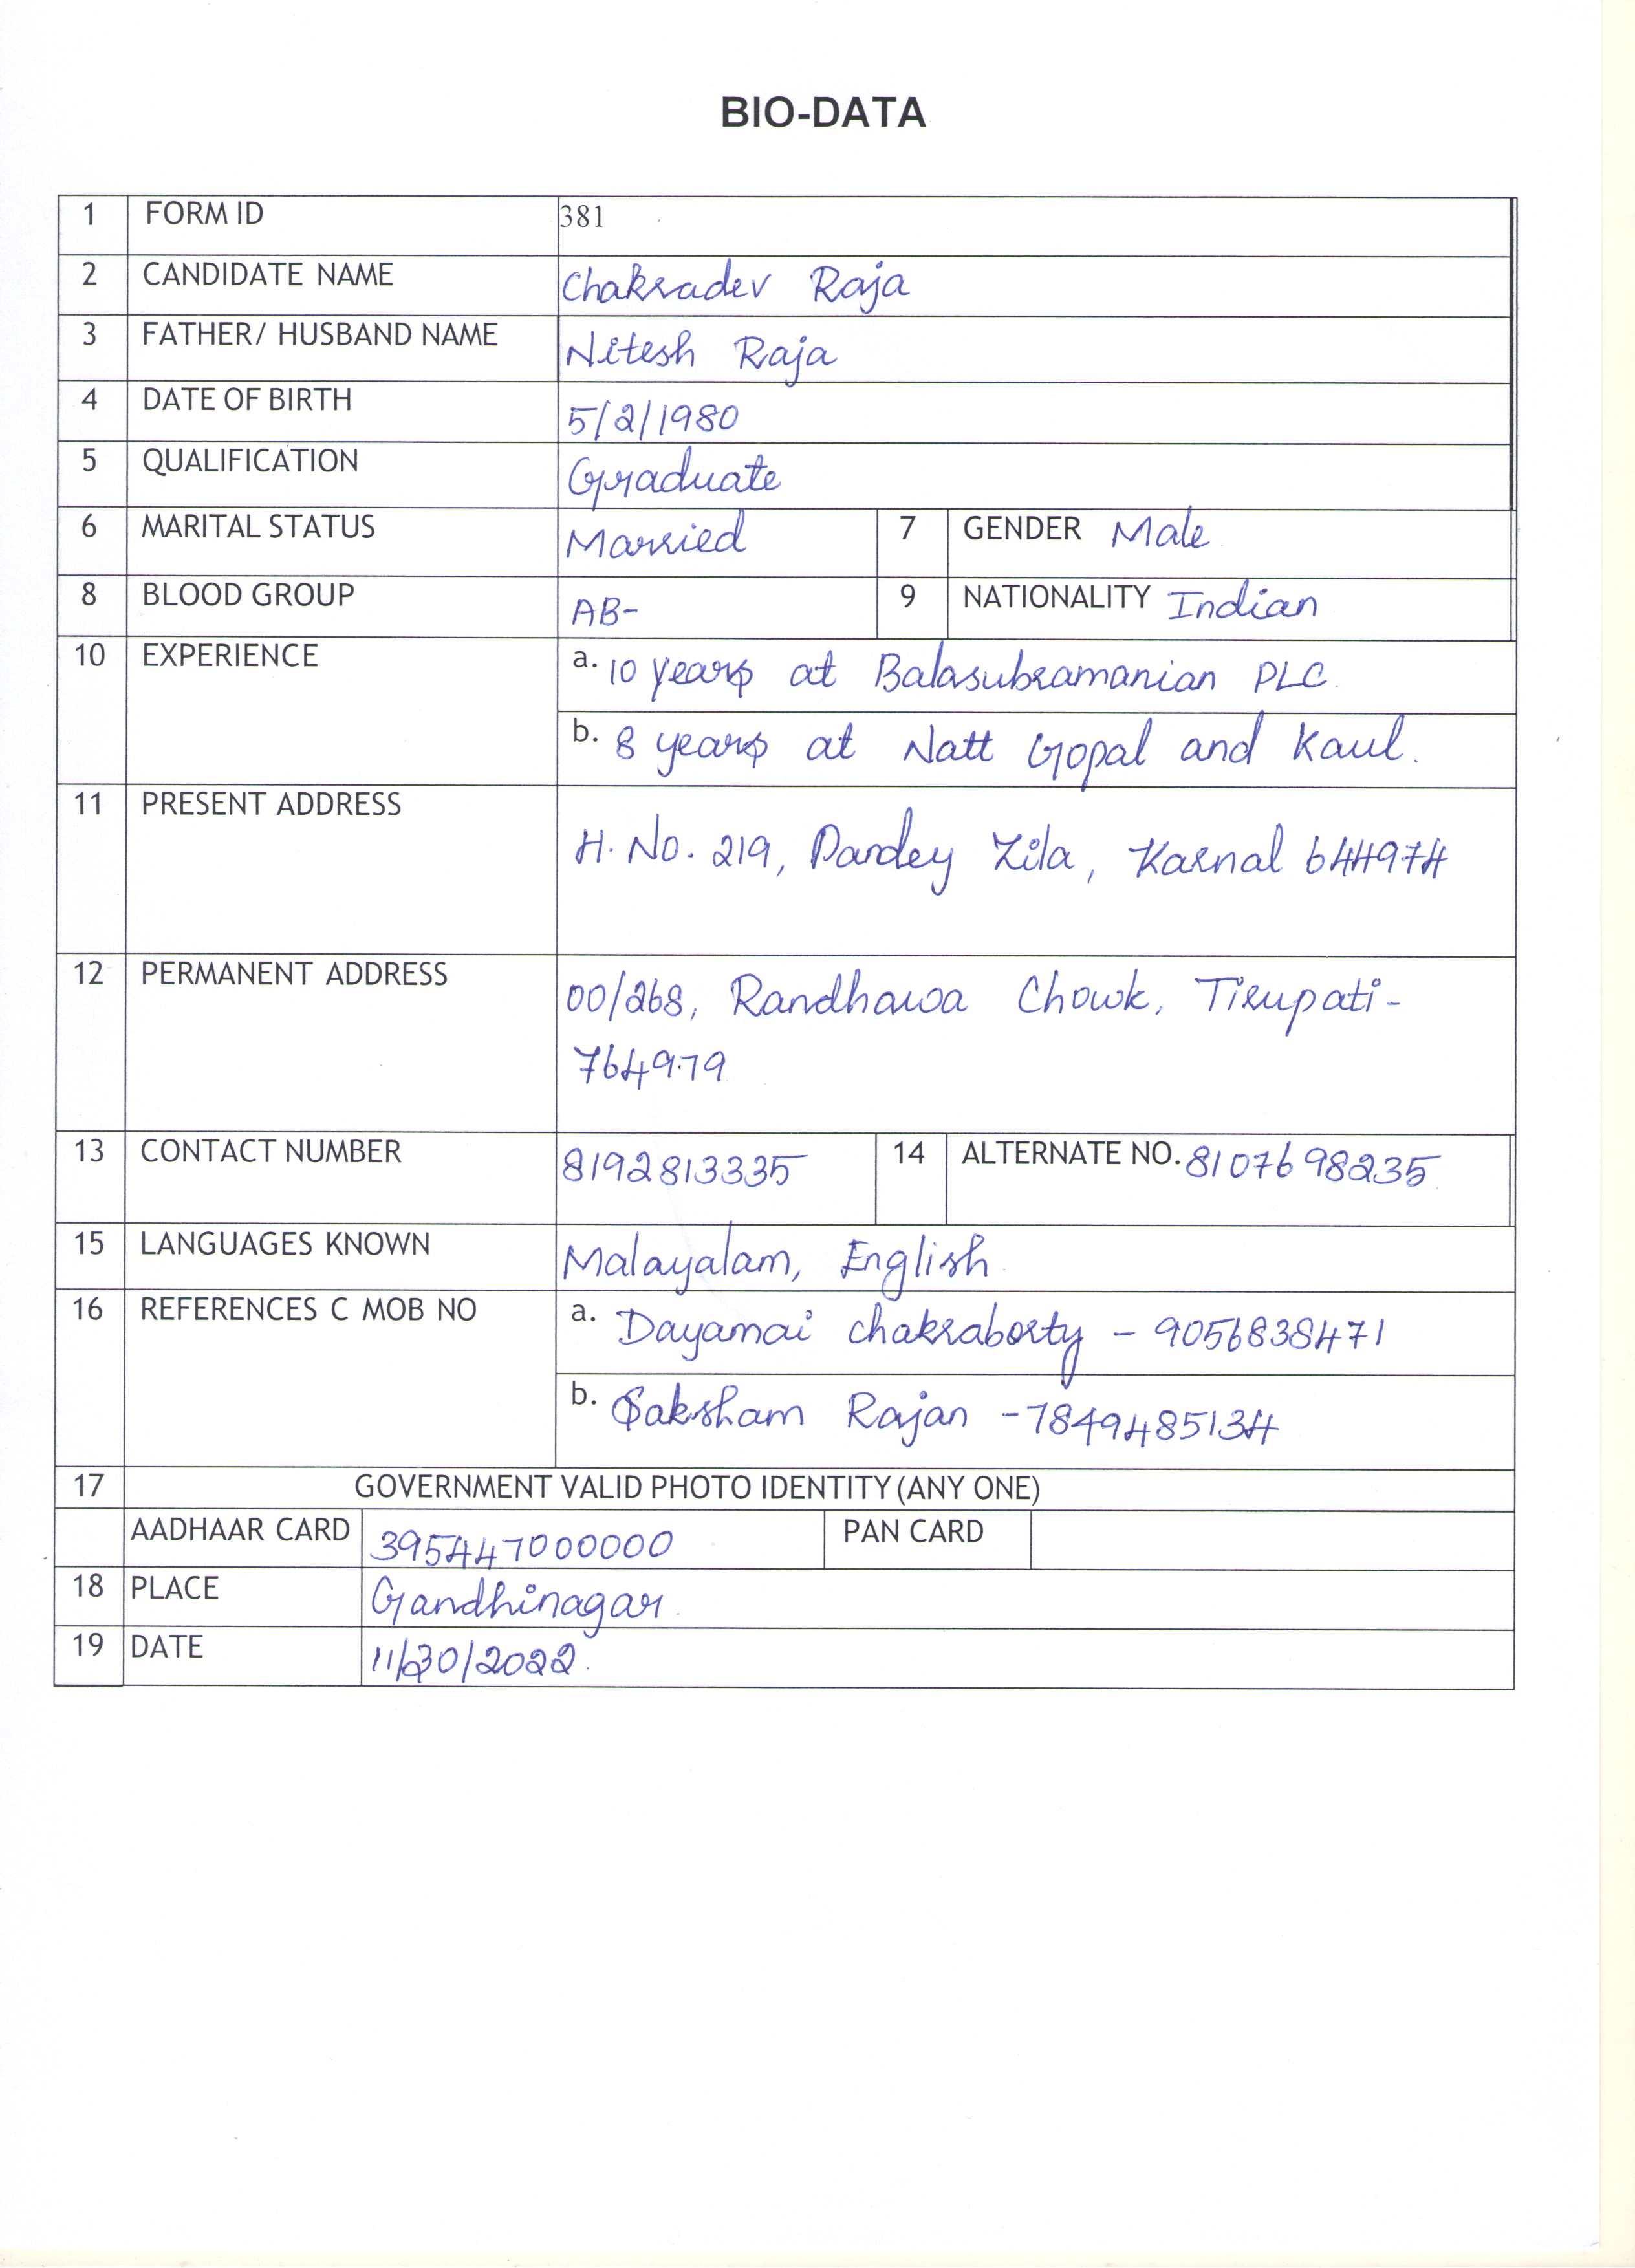 BIO-DATA
1 FORM ID 381
2 CANDIDATE NAME Chakradev Raja
3 FATHER/ HUSBAND NAME Nitesh Raja
4 DATE OF BIRTH 5/2/1980
5 QUALIFICATION Graduate
6 MARITAL STATUS Married 7 GENDER Male
8 BLOOD GROUP AB- 9 NATIONALITY Indian
10 EXPERIENCE a. 10 years at Balasubramanian PLC.
b. 8 years at Natt Gopal and Kaul.
11 PRESENT ADDRESS H. No. 219, Pandey Zila, Karnal 644974
12 PERMANENT ADDRESS 00/268, Randhawa Chowk, Tirupati-
764979
13 CONTACT NUMBER 8192813335 14 ALTERNATE NO. 8107698235
15 LANGUAGES KNOWN Malayalam, English
16 REFERENCES C MOB NO a. Dayamai chakraborty - 9056838471
b. Saksham Rajan - 7849485134
17 GOVERNMENT VALID PHOTO IDENTITY (ANY ONE)
AADHAAR CARD 395447000000 PAN CARD
18 PLACE Gandhinagar.
19 DATE 11/30/2022.